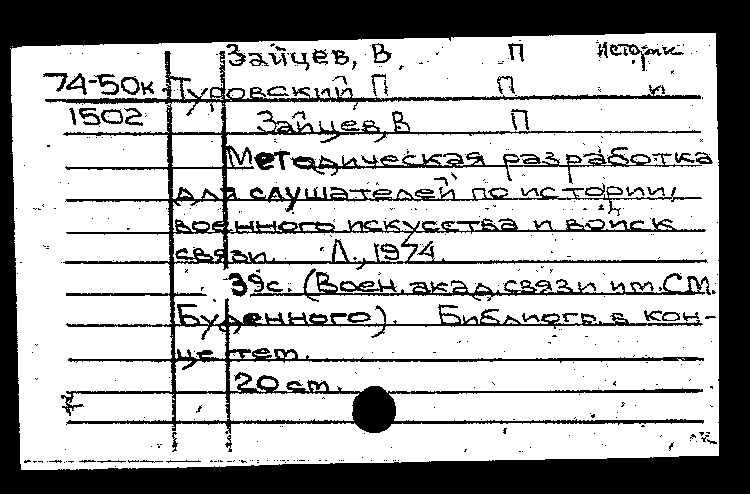 Зайцев, В П Историк
74-50к Туровский П П и
1502 Зайцев, В П
Методическая разработка
для слушателей по истории,
военного искусства и войск
связи. Л., 1974.
39с. (Воен. акад. связи им. С.М.
Буденного). Библиогр. в кон-
це тет.
20 см.